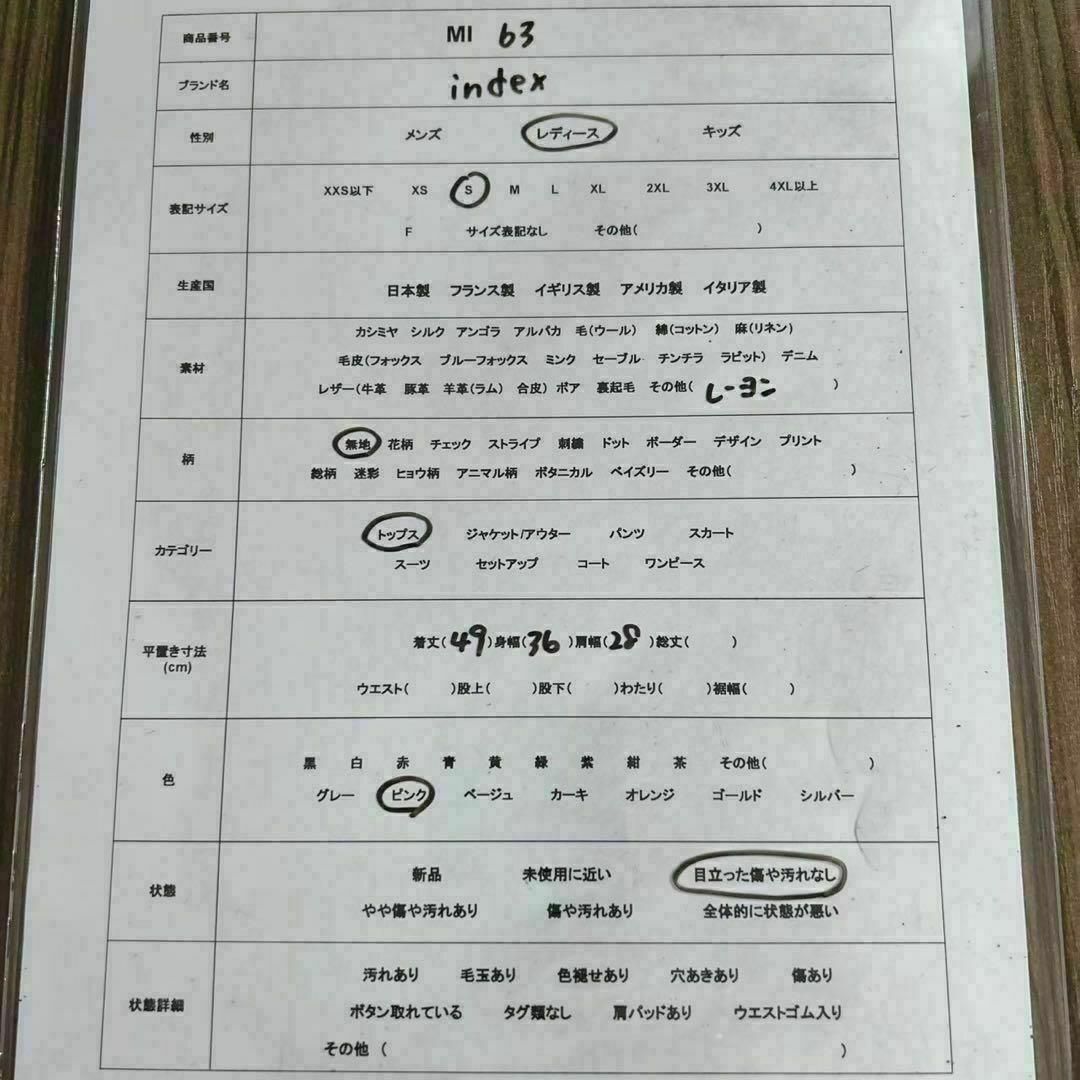 商品番号 MI 63
ブランド名 index
性別 メンズ レディース キッズ
表記サイズ XXS以下 XS S M L XL 2XL 3XL 4XL以上
F サイズ表記なし その他( )
生産国 日本製 フランス製 イギリス製 アメリカ製 イタリア製
素材 カシミヤ シルク アンゴラ アルパカ 毛(ウール) 綿(コットン) 麻(リネン)
毛皮(フォックス ブルーフォックス ミンク セーブル チンチラ ラビット) デニム
レザー(牛革 豚革 羊革(ラム) 合皮) ボア 裏起毛 その他( レーヨン )
柄 無地 花柄 チェック ストライプ 刺繍 ドット ボーダー デザイン プリント
総柄 迷彩 ヒョウ柄 アニマル柄 ボタニカル ペイズリー その他( )
カテゴリー トップス ジャケット/アウター パンツ スカート
スーツ セットアップ コート ワンピース
平置き寸法 (cm) 着丈( 49 )身幅( 36 )肩幅( 28 )総丈( )
ウエスト( )股上( )股下( )わたり( )裾幅( )
色 黒 白 赤 青 黄 緑 紫 紺 茶 その他( )
グレー ピンク ベージュ カーキ オレンジ ゴールド シルバー
状態 新品 未使用に近い 目立った傷や汚れなし
やや傷や汚れあり 傷や汚れあり 全体的に状態が悪い
状態詳細 汚れあり 毛玉あり 色褪せあり 穴あきあり 傷あり
ボタン取れている タグ類なし 肩パッドあり ウエストゴム入り
その他 ( )